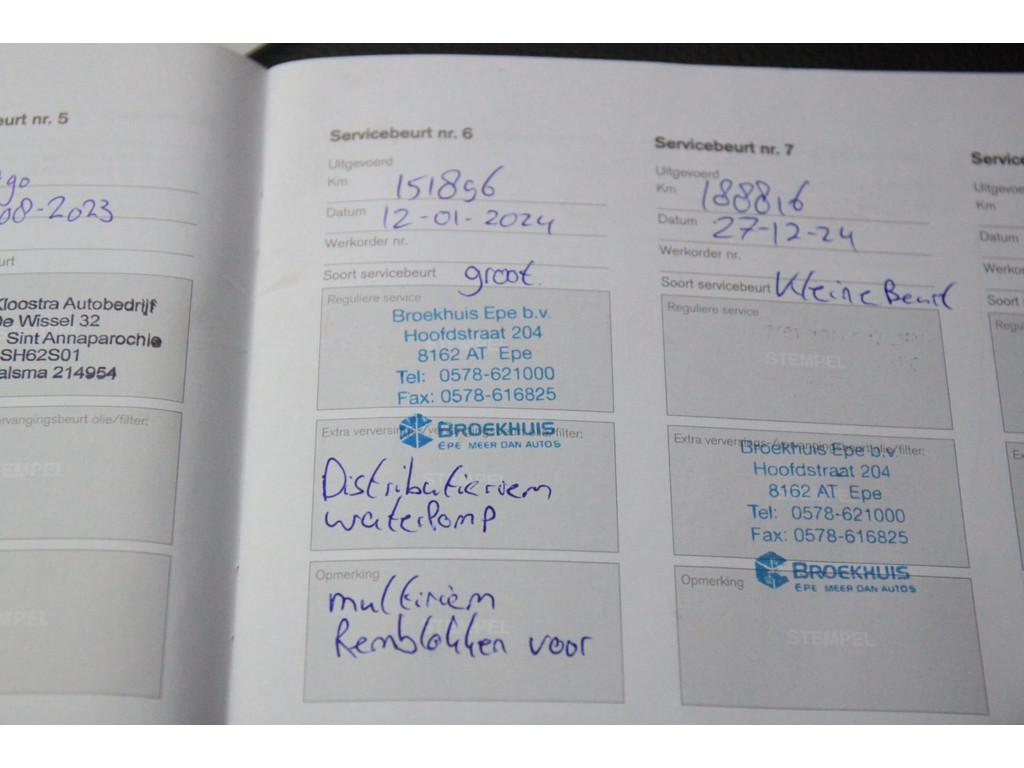 eurt nr. 5
08-2023
urt
Kloostra Autobedrijf
De Wissel 32
Sint Annaparochie
SH62S01
alsma 214954
ervangingsbeurt olie/filter:
STEMPEL
STEMPEL
Servicebeurt nr. 6
Uitgevoerd
Km 151896
Datum 12-01-2024
Werkorder nr.
Soort servicebeurt groot.
Reguliere service
Broekhuis Epe b.v.
Hoofdstraat 204
8162 AT Epe
Tel: 0578-621000
Fax: 0578-616825
BROEKHUIS
EPE MEER DAN AUTOS
Extra verversings-/vervangingsbeurt olie/filter:
Distributieriem
waterpomp
Opmerking
multiriem
Remblokken voor
Servicebeurt nr. 7
Uitgevoerd
Km 188816
Datum 27-12-24
Werkorder nr.
Soort servicebeurt Kleine Beurt
Reguliere service
STEMPEL
Extra verversings-/vervangingsbeurt olie/filter:
Broekhuis Epe b.v.
Hoofdstraat 204
8162 AT Epe
Tel: 0578-621000
Fax: 0578-616825
BROEKHUIS
EPE MEER DAN AUTOS
Opmerking
STEMPEL
Service
Uitgevoe
Km
Datum
Werko
Soort
Regu